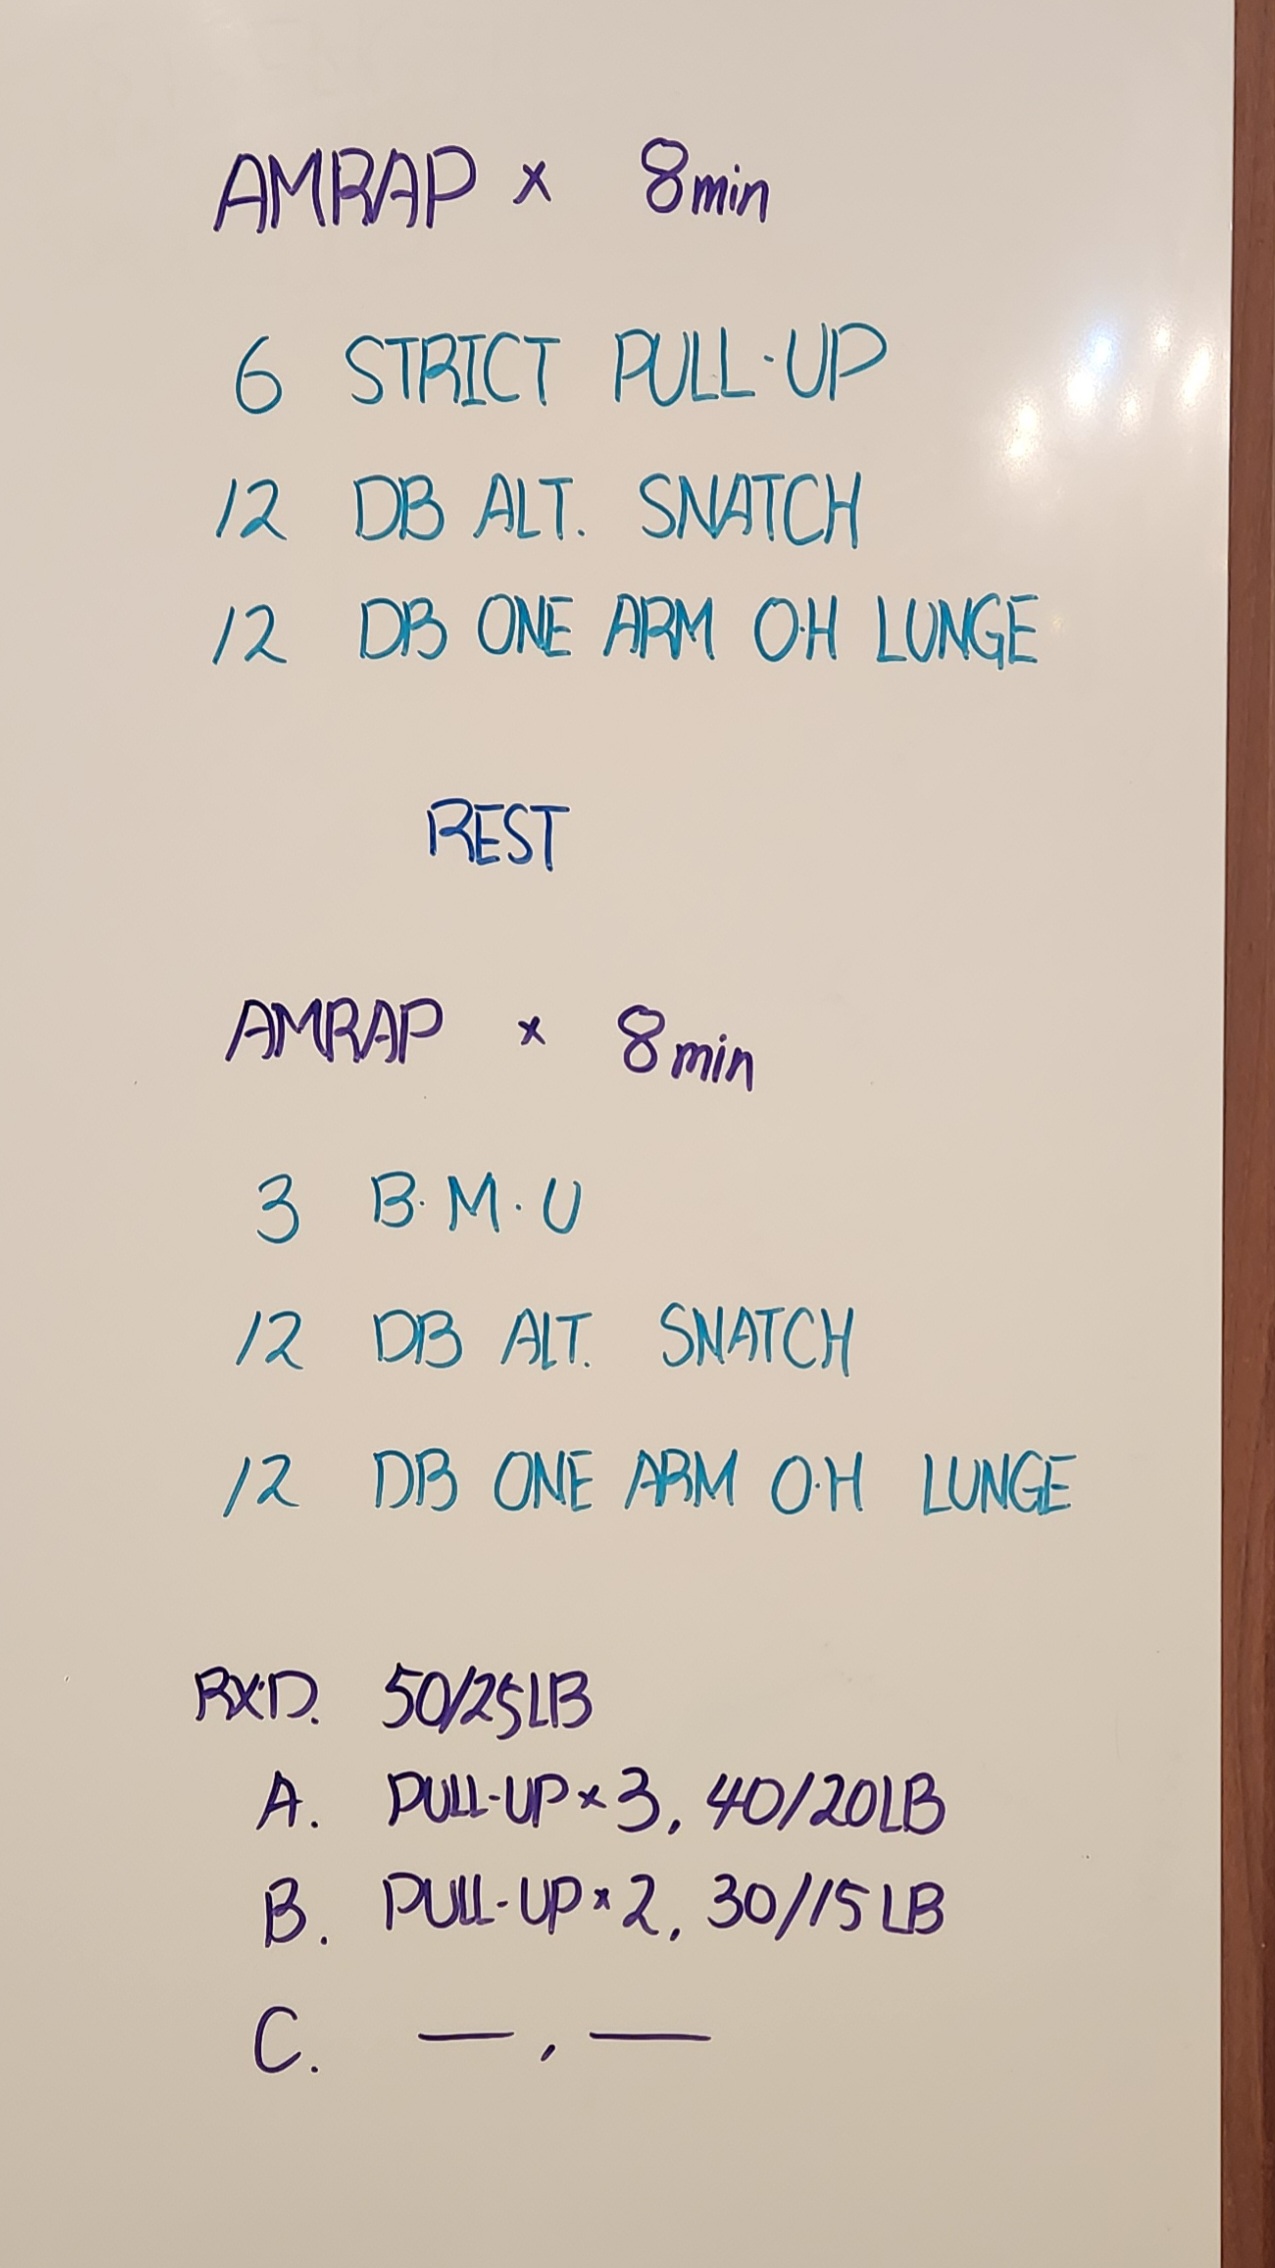 AMRAP x 8min
6 STRICT PULL-UP
12 DB ALT. SNATCH
12 DB ONE ARM O·H LUNGE
REST
AMRAP x 8min
3 B·M·U
12 DB ALT. SNATCH
12 DB ONE ARM O·H LUNGE
RX'D. 50/25LB
A. PULL-UP x 3, 40/20LB
B. PULL-UP x 2, 30/15LB
C. — , —